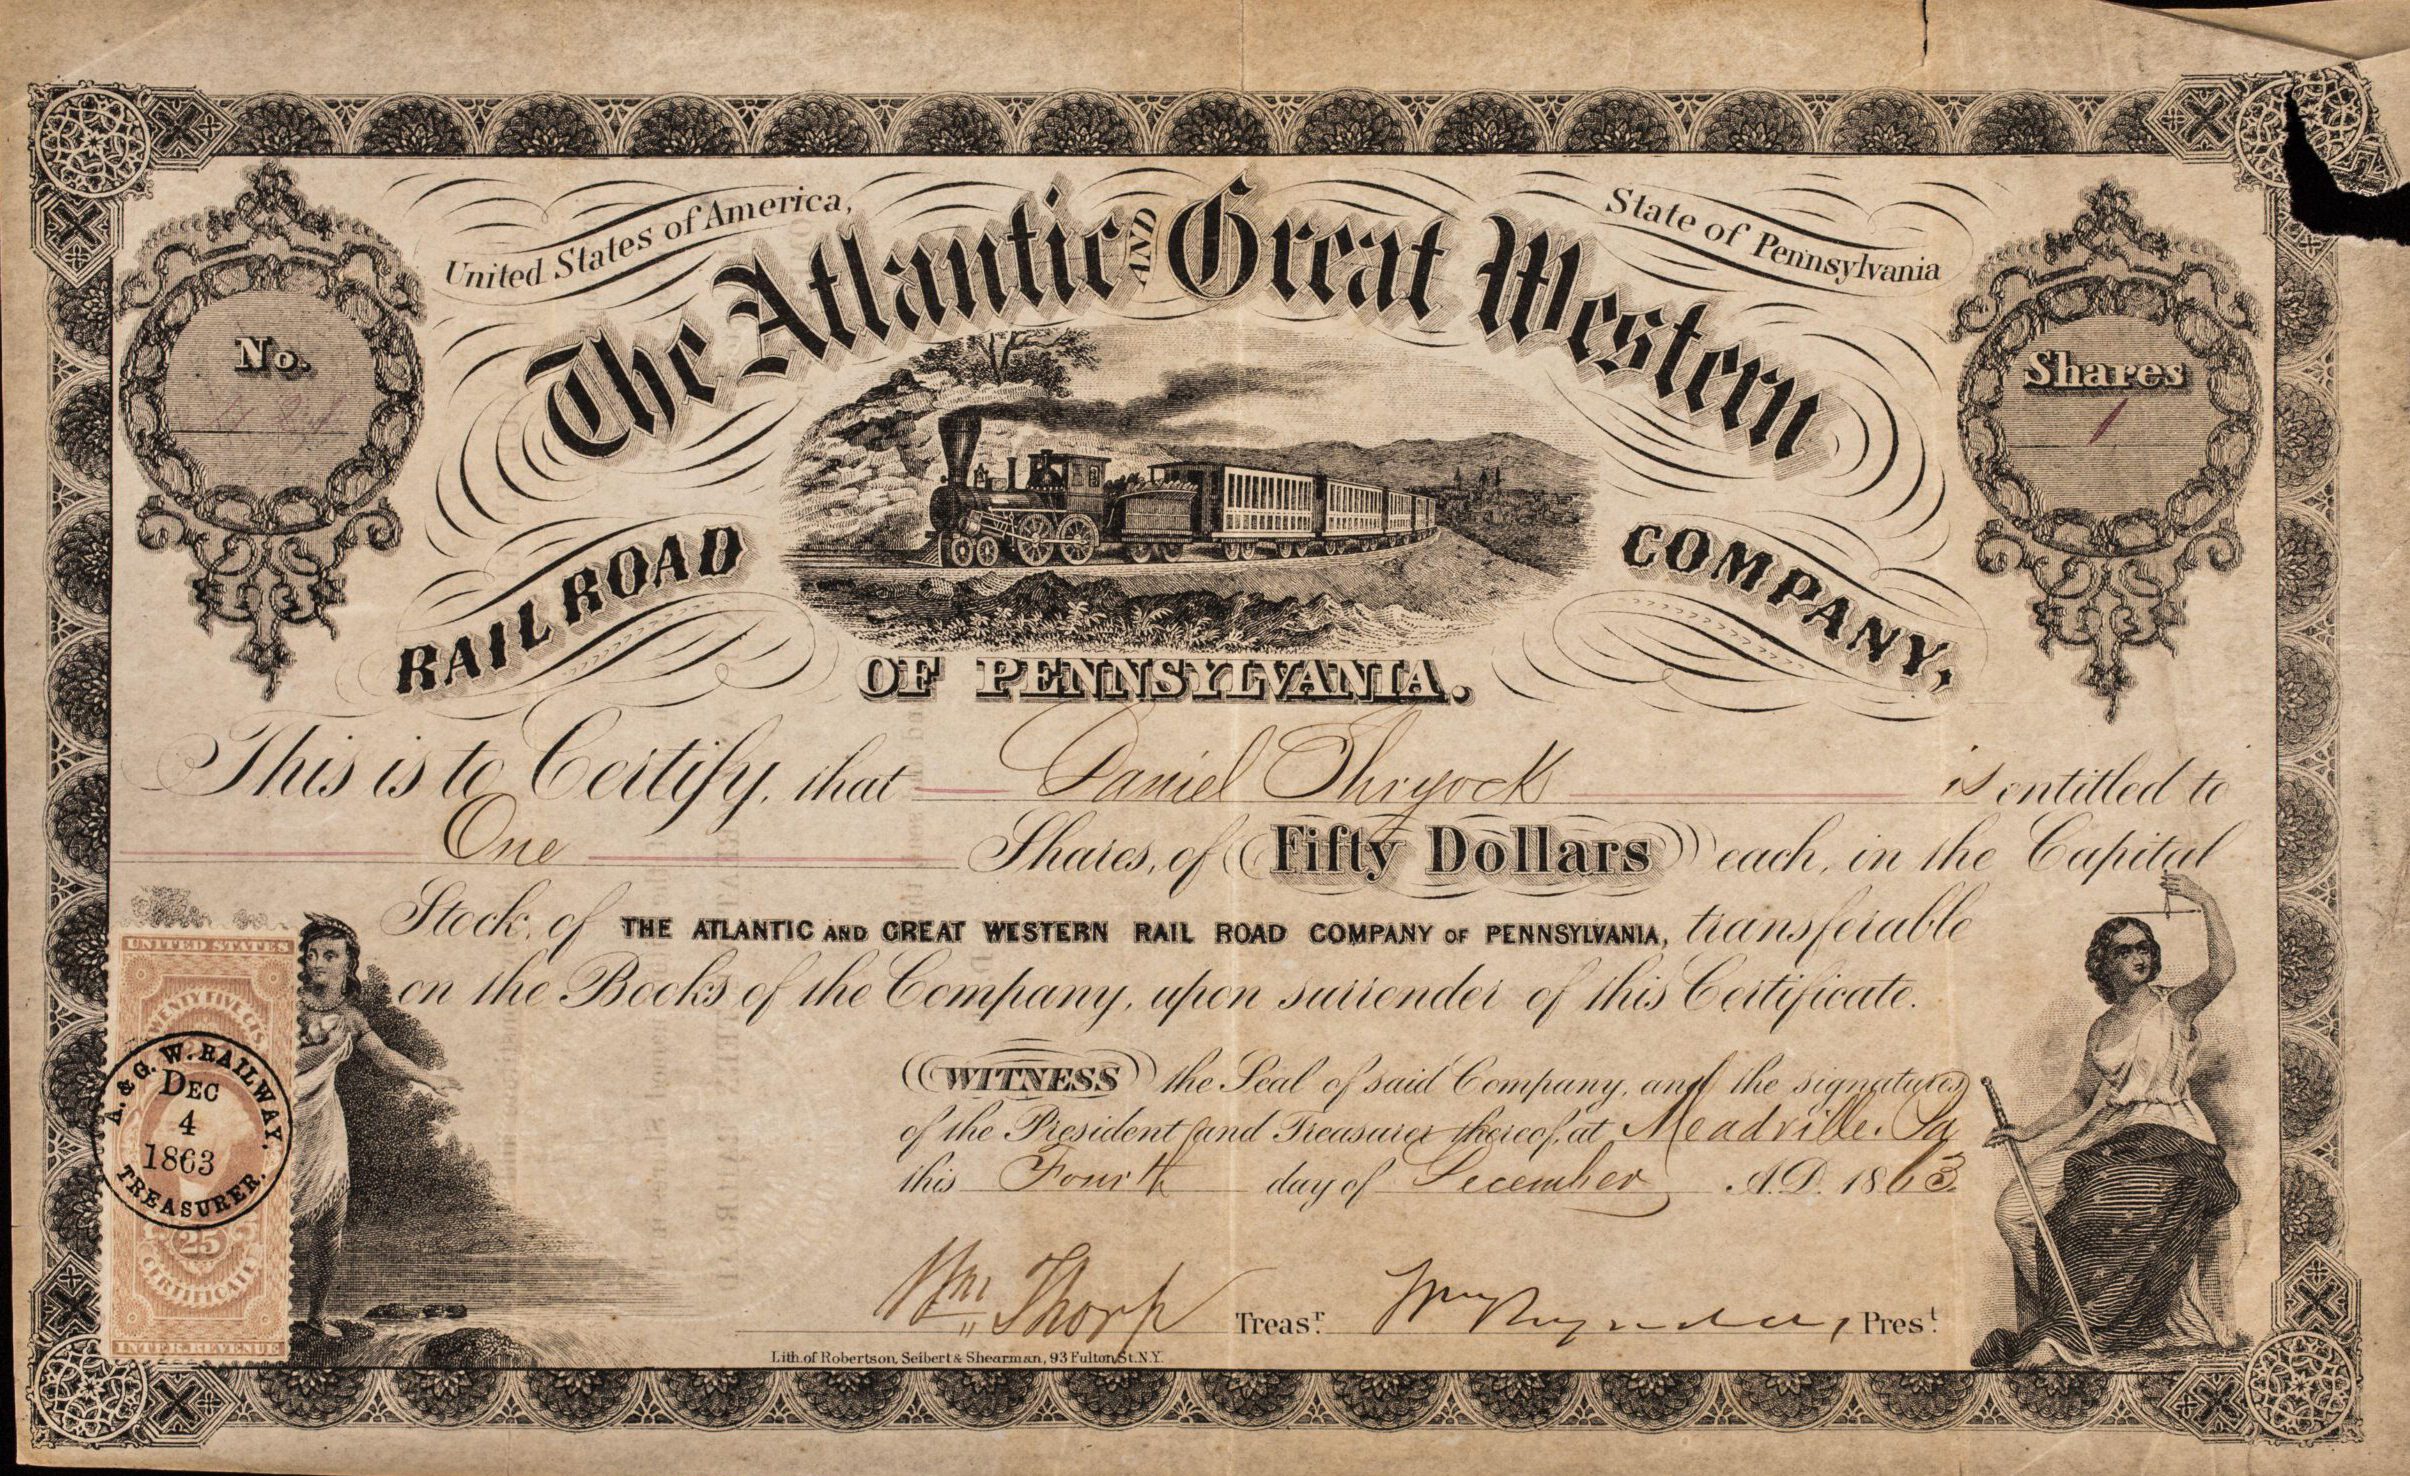 United States of America,
State of Pennsylvania
The Atlantic AND Great Western
RAIL ROAD
COMPANY,
OF PENNSYLVANIA.
No.
Shares
1
This is to Certify, that Daniel Shryock is entitled to
One Shares, of Fifty Dollars each, in the Capital
Stock, of THE ATLANTIC AND GREAT WESTERN RAIL ROAD COMPANY OF PENNSYLVANIA, transferable
on the Books of the Company, upon surrender of this Certificate.
WITNESS the Seal of said Company, and the signatures
of the President and Treasurer thereof, at Meadville. Pa
this Fourth day of December A.D. 1863
Wm Thorp Treasr. Wm Reynolds, Prest.
Lith. of Robertson, Seibert & Shearman, 93 Fulton St. N.Y.
UNITED STATES
TWENTY FIVE CTS.
A. & G. W. RAILWAY.
DEC
4
1863
TREASURER.
25
CERTIFICATE
INTER. REVENUE